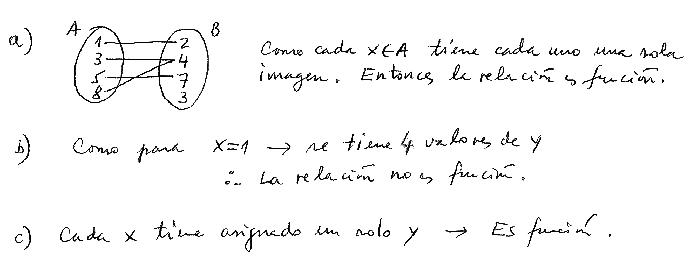 a) A B
1 2
3 4
5 7
8 3
Como cada x∈A tiene cada uno una sola
imagen. Entonces la relación es función.
b) Como para x=1 → se tiene 4 valores de y
∴ La relación no es función.
c) Cada x tiene asignado un solo y → Es función.